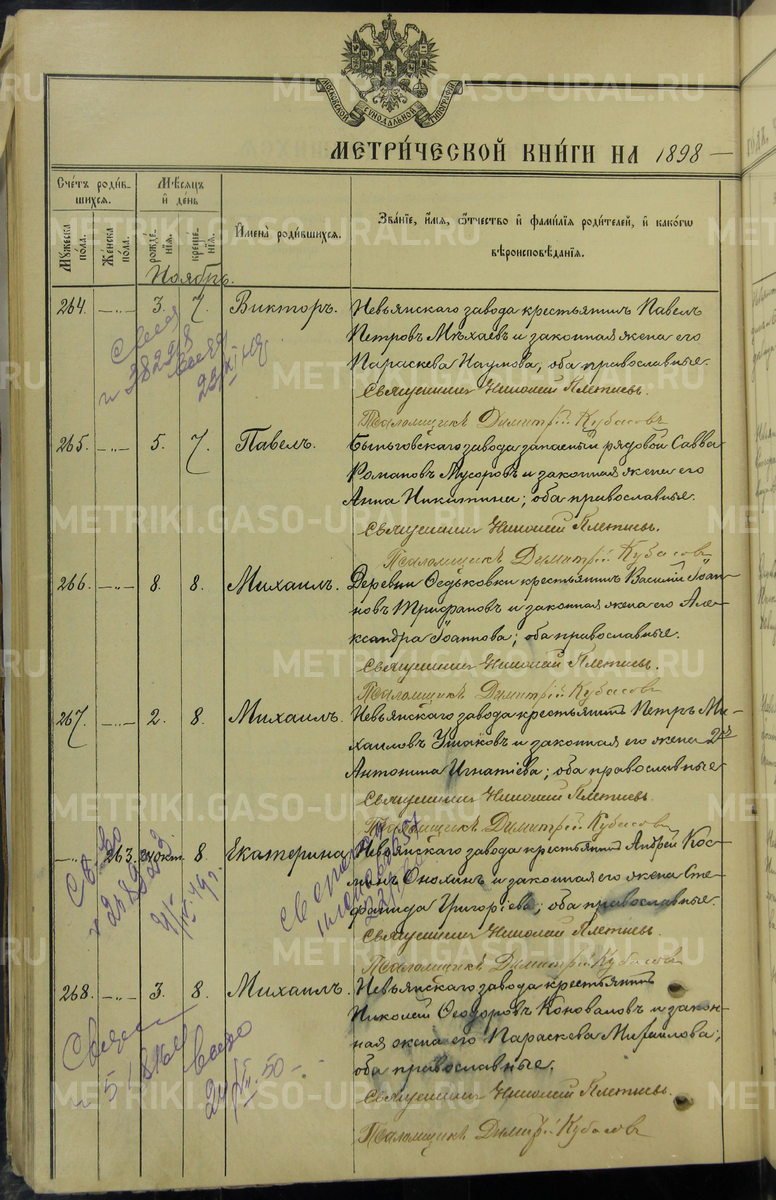 МОСКОВСКОЙ СѴНОДАЛЬНОЙ ТИПОГРАФІИ
МЕТРИ́ЧЕСКОЙ КНИ́ГИ НА 1898 —
Сче́тъ роди́вшихся.
Мѣ́сяцъ и҆ де́нь
Мꙋ́жеска по́ла.
Же́нска по́ла.
рожде́нїѧ.
креще́нїѧ.
И҆мена̀ роди́вшихсѧ.
Зва́нїе, и҆́мѧ, ѻ҆́тчество и҆ фами́лїѧ роди́телей, и҆ како́гѡ вѣроисповѣ́данїѧ.
Ноябрь.
264. —„— 3. 7. Викторъ. Невьянскаго завода крестьянинъ Павелъ
Петровъ Мѣхаевъ и законная жена его
Параскева Наумова, оба православные.
Священникъ Николай Плетневъ.
Псаломщикъ Димитрій Кубасовъ
265. —„— 5. 7. Павелъ. Быньговскаго завода запасный рядовой Савва
Романовъ Мусоровъ и законная жена его
Анна Никитина; оба православные.
Священникъ Николай Плетневъ.
Псаломщикъ Димитрій Кубасовъ
266. —„— 8. 8. Михаилъ. Деревни Ѳедьковки крестьянинъ Василій Іоан-
новъ Трифановъ и законная жена его Але-
ксандра Іоаннова; оба православные.
Священникъ Николай Плетневъ.
Псаломщикъ Димитрій Кубасовъ
267. —„— 2. 8. Михаилъ. Невьянскаго завода крестьянинъ Петръ Ми-
хаиловъ Ушаковъ и законная его жена 2ая
Антонина Игнатіева; оба православные
Священникъ Николай Плетневъ.
Псаломщикъ Димитрій Кубасовъ
—„— 263. окт. 8. Екатерина. Невьянскаго завода крестьянинъ Андрей Кос-
минъ Ѳнолинъ и законная его жена Сте-
фанида Григоріева; оба православные.
Священникъ Николай Плетневъ.
Псаломщикъ Димитрій Кубасовъ
268. —„— 3. 8. Михаилъ. Невьянскаго завода крестьянинъ
Николай Ѳеодоровъ Коноваловъ и закон-
ная жена его Параскева Михаилова;
оба православные.
Священникъ Николай Плетневъ.
Псаломщикъ Димитрій Кубасовъ
METRIKI.GASO-URAL.RU